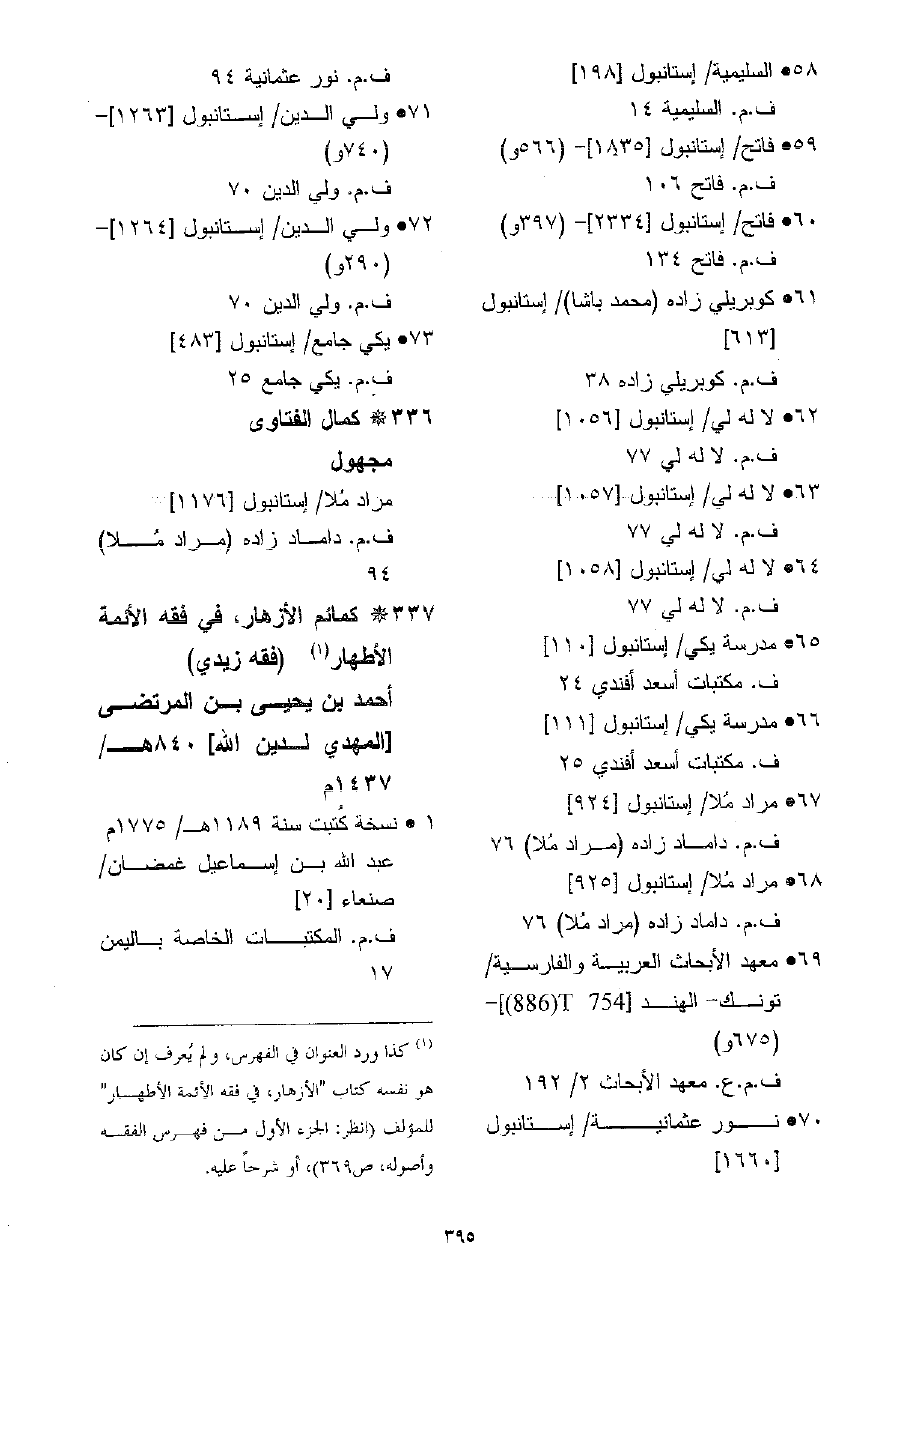 ٥٨● السليمية/ إستانبول [١٩٨]
ف.م. السليمية ١٤
٥٩● فاتح/ إستانبول [١٨٣٥]- (٥٦٦و)
ف.م. فاتح ١٠٦
٦٠● فاتح/ إستانبول [٢٣٣٤]- (٣٩٧و)
ف.م. فاتح ١٣٤
٦١● كوبريلي زاده (محمد باشا)/ إستانبول
[٦١٣]
ف.م. كوبريلي زاده ٣٨
٦٢● لا له لي/ إستانبول [١٠٥٦]
ف.م. لا له لي ٧٧
٦٣● لا له لي/ إستانبول [١٠٥٧]
ف.م. لا له لي ٧٧
٦٤● لا له لي/ إستانبول [١٠٥٨]
ف.م. لا له لي ٧٧
٦٥● مدرسة يكي/ إستانبول [١١٠]
ف. مكتبات أسعد أفندي ٢٤
٦٦● مدرسة يكي/ إستانبول [١١١]
ف. مكتبات أسعد أفندي ٢٥
٦٧● مراد مُلا/ إستانبول [٩٢٤]
ف.م. داماد زاده (مراد مُلا) ٧٦
٦٨● مراد مُلا/ إستانبول [٩٢٥]
ف.م. داماد زاده (مراد مُلا) ٧٦
٦٩● معهد الأبحاث العربية والفارسية/
تونك- الهند [754 T(886)]-
(٦٧٥و)
ف.م.ع. معهد الأبحاث ٢/ ١٩٢
٧٠● نور عثمانية/ إستانبول
[١٦٦٠]
ف.م. نور عثمانية ٩٤
٧١● ولي الدين/ إستانبول [١٢٦٣]-
(٧٤٠و)
ف.م. ولي الدين ٧٠
٧٢● ولي الدين/ إستانبول [١٢٦٤]-
(٢٩٠و)
ف.م. ولي الدين ٧٠
٧٣● يكي جامع/ إستانبول [٤٨٣]
ف.م. يكي جامع ٢٥
٣٣٦* كمال الفتاوى
مجهول
مراد مُلا/ إستانبول [١١٧٦]
ف.م. داماد زاده (مراد مُلا)
٩٤
٣٣٧* كمائم الأزهار، في فقه الأئمة
الأطهار(١) (فقه زيدي)
أحمد بن يحيى بن المرتضى
[المهدي لدين الله] ٨٤٠هـ/
١٤٣٧م
١ ● نسخة كُتبت سنة ١١٨٩هـ/ ١٧٧٥م
عبد الله بن إسماعيل غمضان/
صنعاء [٢٠]
ف.م. المكتبات الخاصة باليمن
١٧
(١) كذا ورد العنوان في الفهرس، ولم يُعرف إن كان
هو نفسه كتاب "الأزهار، في فقه الأئمة الأطهار"
للمؤلف (انظر: الجزء الأول من فهرس الفقه
وأصوله، ص٣٦٩)، أو شرحاً عليه.
٣٩٥